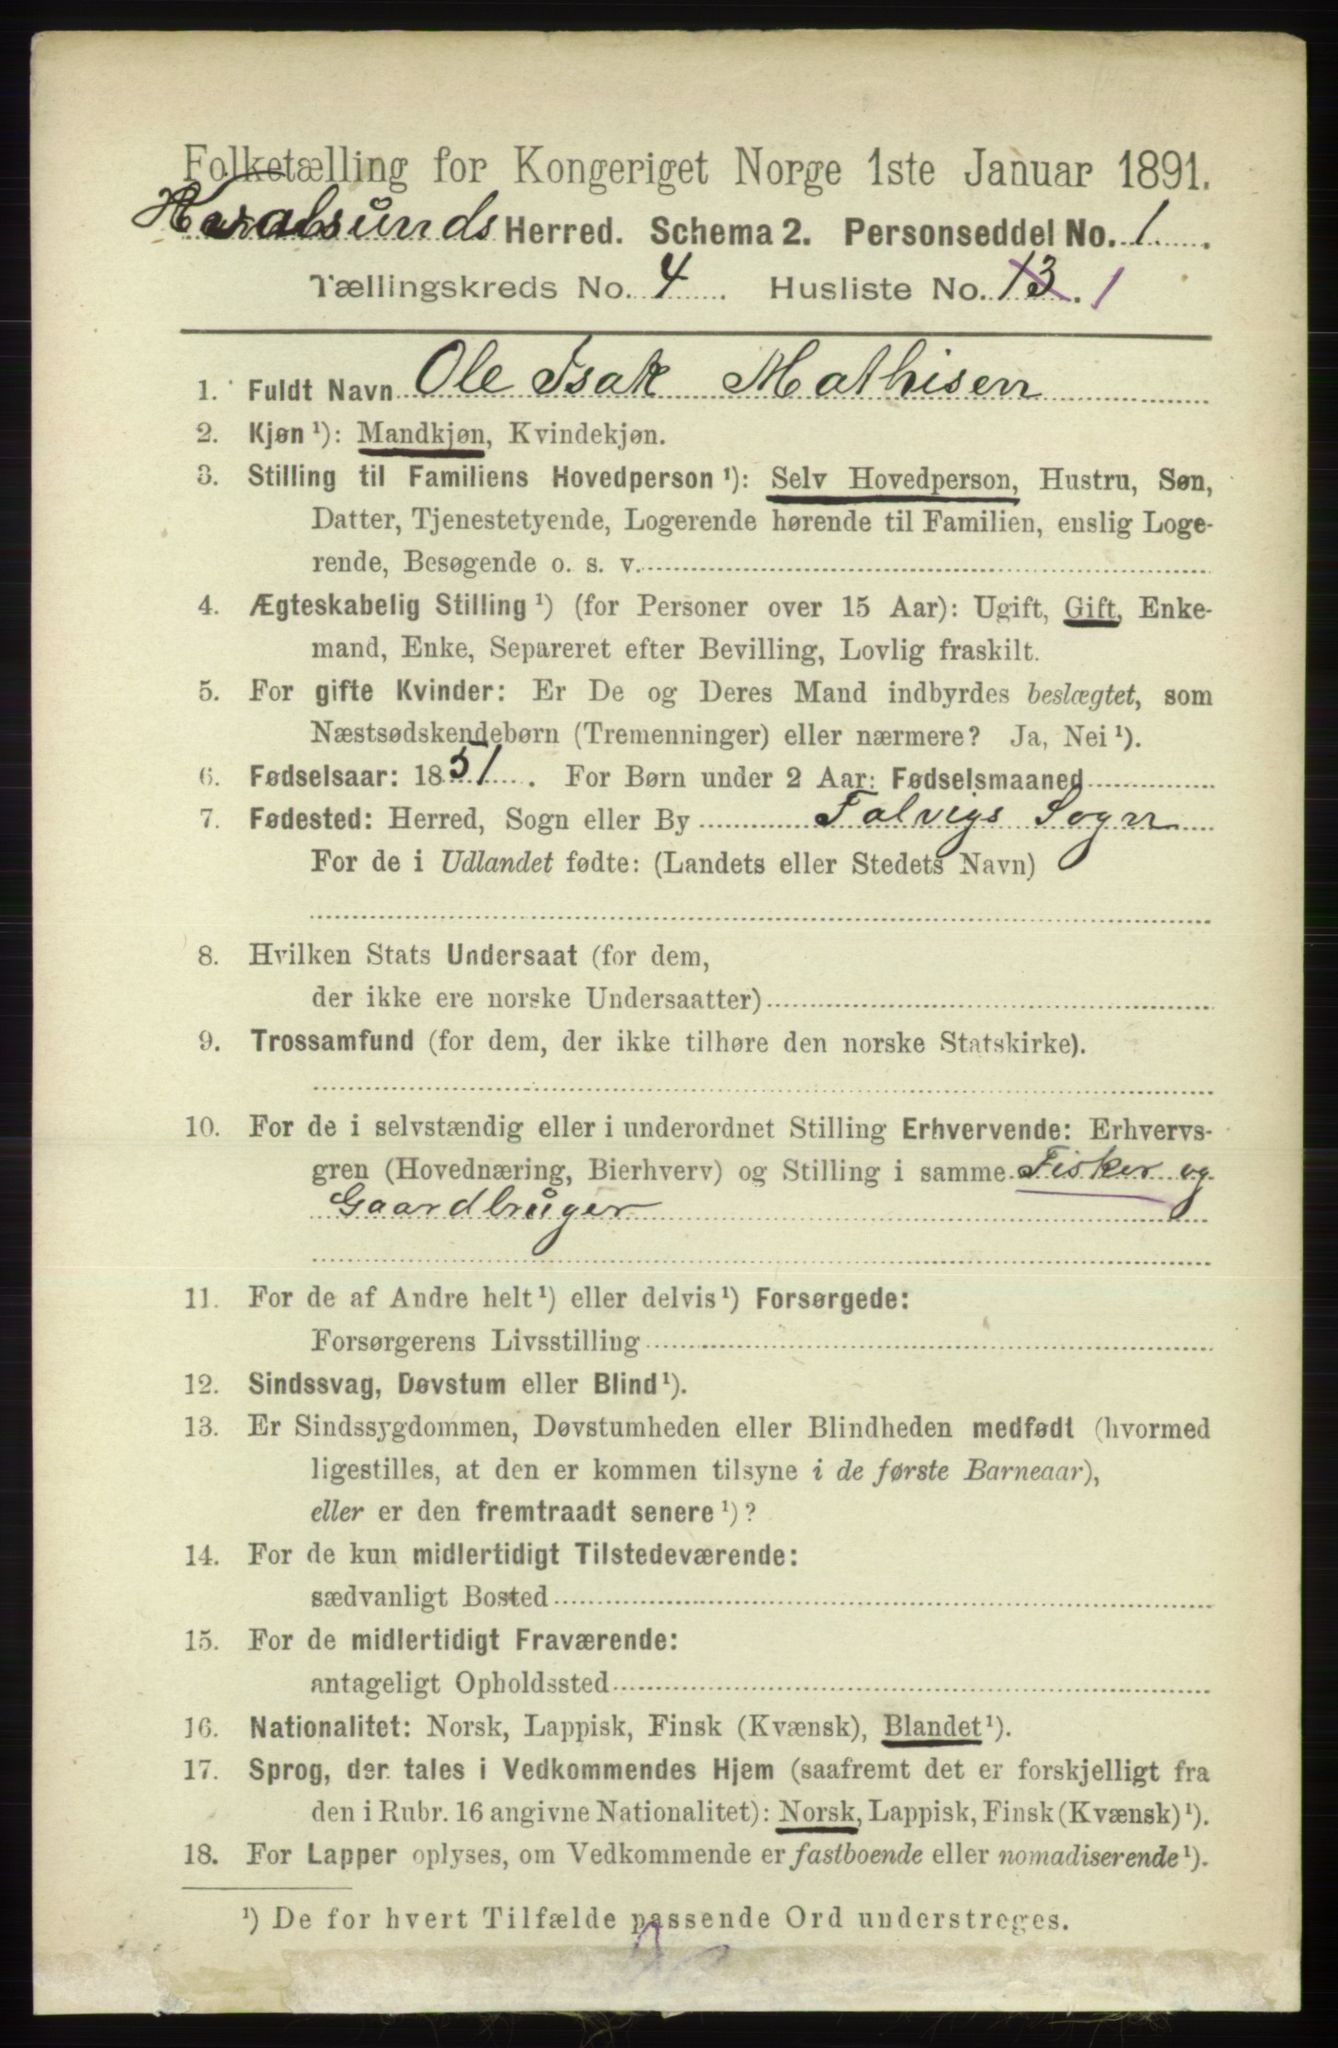 Folketælling for Kongeriget Norge 1ste Januar 1891.
Kvalsunds Herred. Schema 2. Personseddel No. 1
Tællingskreds No. 4 Husliste No. 13. 1
1. Fuldt Navn Ole Isak Mathisen
2. Kjøn ¹): Mandkjøn, Kvindekjøn.
3. Stilling til Familiens Hovedperson ¹): Selv Hovedperson, Hustru, Søn,
Datter, Tjenestetyende, Logerende hørende til Familien, enslig Loge-
rende, Besøgende o. s. v.
4. Ægteskabelig Stilling ¹) (for Personer over 15 Aar): Ugift, Gift, Enke-
mand, Enke, Separeret efter Bevilling, Lovlig fraskilt.
5. For gifte Kvinder: Er De og Deres Mand indbyrdes beslægtet, som
Næstsødskendebørn (Tremenninger) eller nærmere? Ja, Nei ¹).
6. Fødselsaar: 1851. For Børn under 2 Aar: Fødselsmaaned
7. Fødested: Herred, Sogn eller By Talvigs Sogn
For de i Udlandet fødte: (Landets eller Stedets Navn)
8. Hvilken Stats Undersaat (for dem,
der ikke ere norske Undersaatter)
9. Trossamfund (for dem, der ikke tilhøre den norske Statskirke).
10. For de i selvstændig eller i underordnet Stilling Erhvervende: Erhvervs-
gren (Hovednæring, Bierhverv) og Stilling i samme Fisker og
Gaardbruger
11. For de af Andre helt ¹) eller delvis ¹) Forsørgede:
Forsørgerens Livsstilling
12. Sindssvag, Døvstum eller Blind ¹).
13. Er Sindssygdommen, Døvstumheden eller Blindheden medfødt (hvormed
ligestilles, at den er kommen tilsyne i de første Barneaar),
eller er den fremtraadt senere ¹)?
14. For de kun midlertidigt Tilstedeværende:
sædvanligt Bosted
15. For de midlertidigt Fraværende:
antageligt Opholdssted
16. Nationalitet: Norsk, Lappisk, Finsk (Kvænsk), Blandet ¹).
17. Sprog, der tales i Vedkommendes Hjem (saafremt det er forskjelligt fra
den i Rubr. 16 angivne Nationalitet): Norsk, Lappisk, Finsk (Kvænsk) ¹).
18. For Lapper oplyses, om Vedkommende er fastboende eller nomadiserende ¹).
¹) De for hvert Tilfælde passende Ord understreges.